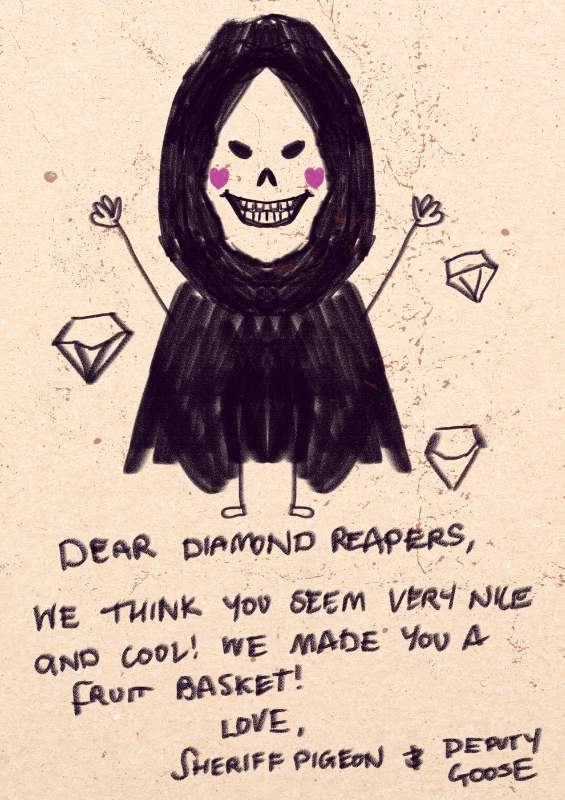 DEAR DIAMOND REAPERS,
WE THINK YOU SEEM VERY NICE
AND COOL! WE MADE YOU A
FRUIT BASKET!
LOVE,
SHERIFF PIGEON & DEPUTY
GOOSE